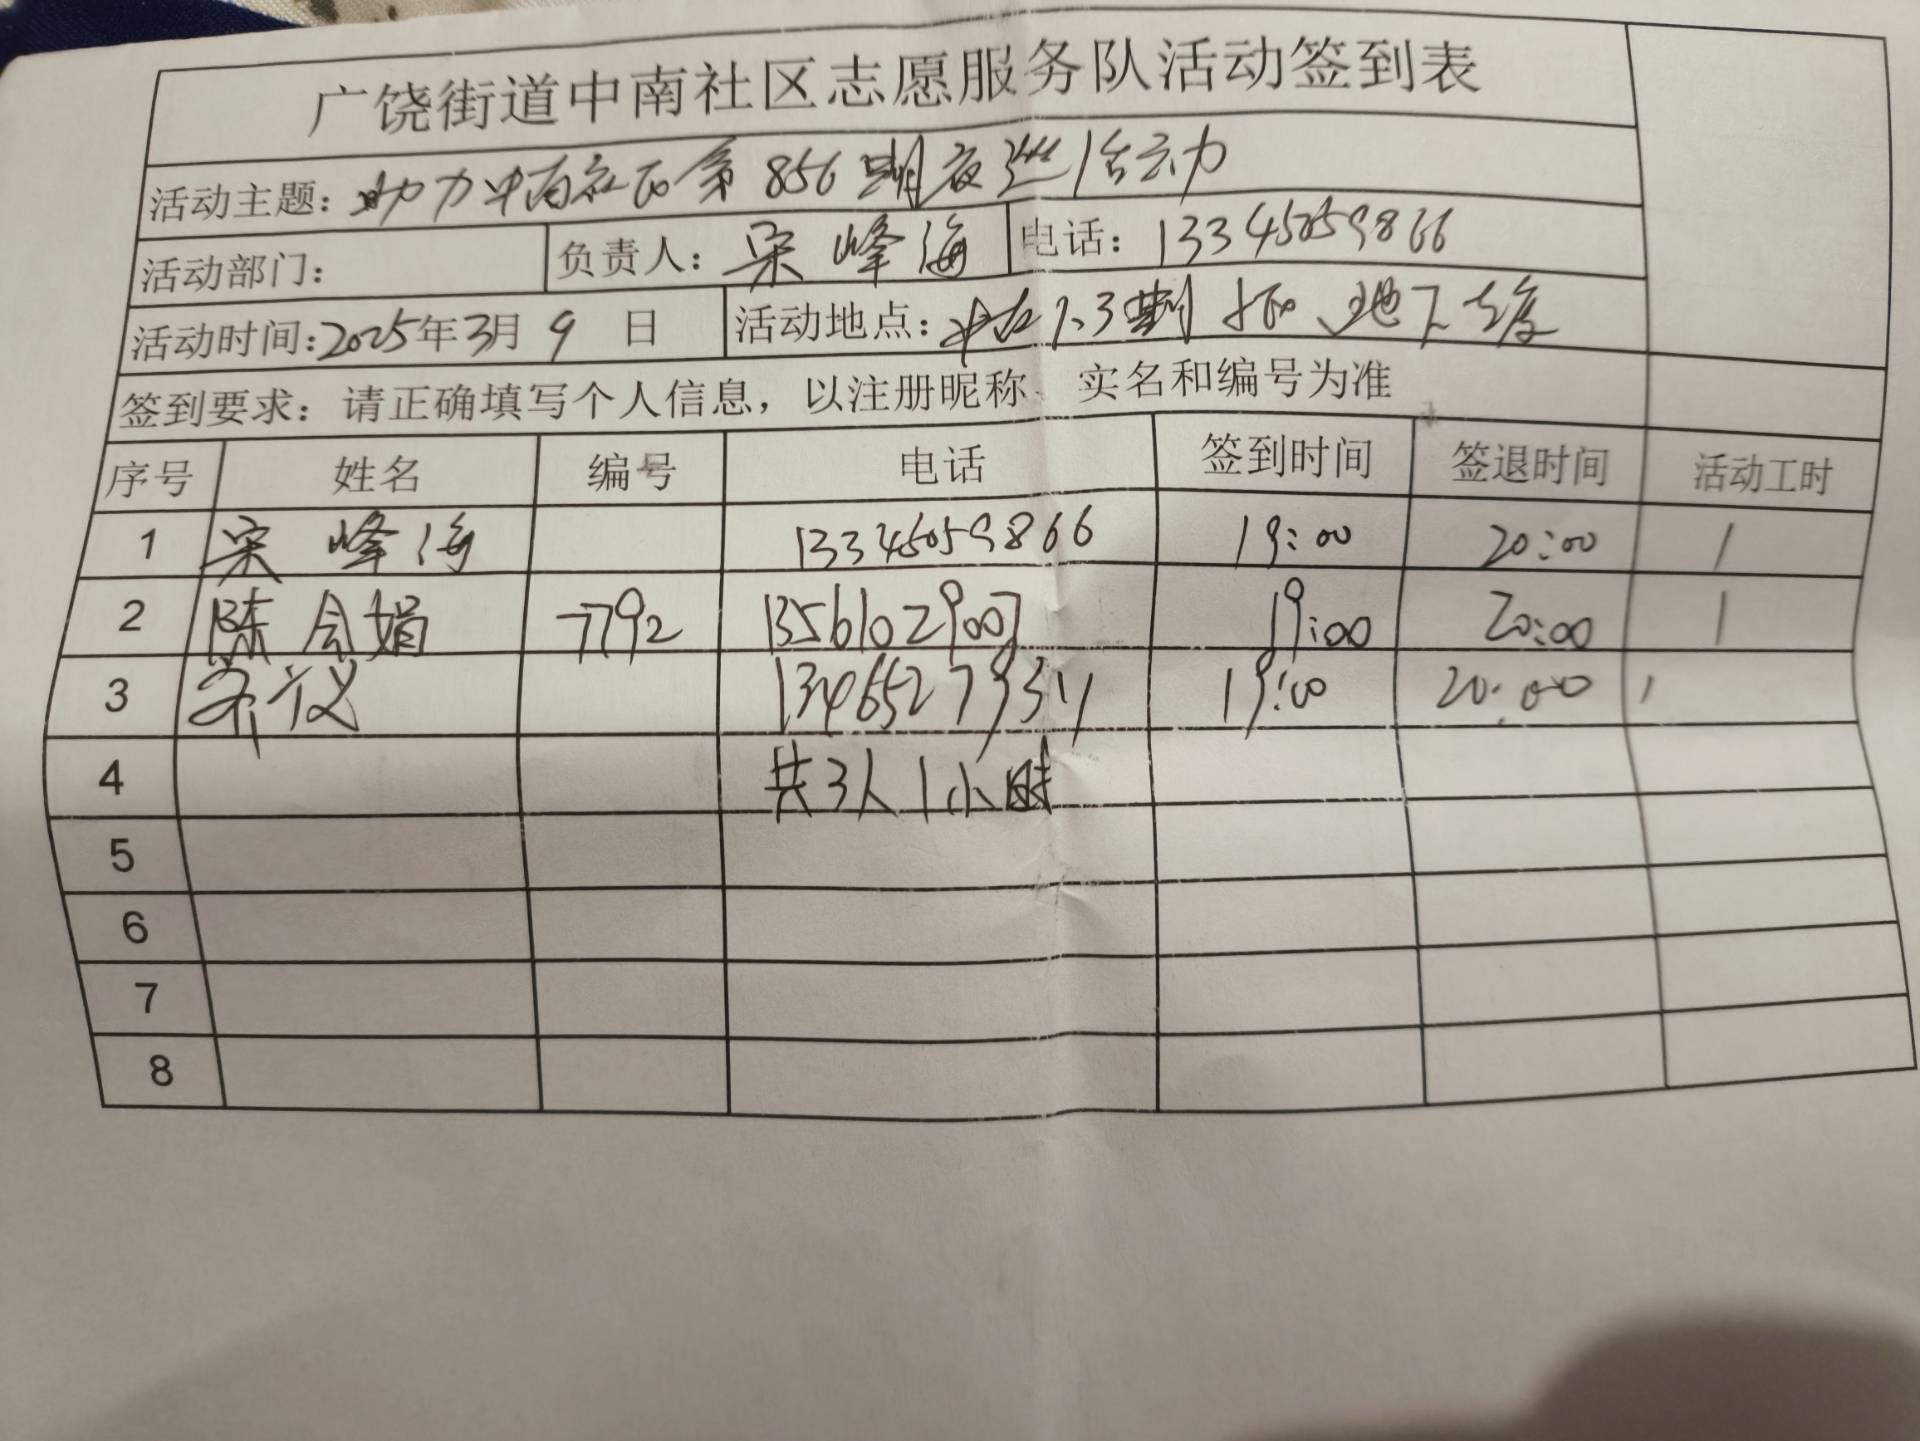 广饶街道中南社区志愿服务队活动签到表
活动主题：助力中南社区第856期夜巡活动
活动部门： 负责人：宋峰海 电话：13345059866
活动时间：2025年3月9日 活动地点：中南1.3期 地下车库
签到要求：请正确填写个人信息，以注册昵称、实名和编号为准
序号 姓名 编号 电话 签到时间 签退时间 活动工时
1 宋峰海 13345059866 19:00 20:00 1
2 陈会娟 7792 13561029007 19:00 20:00 1
3 19:00 20:00 1
4 共3人1小时
5
6
7
8